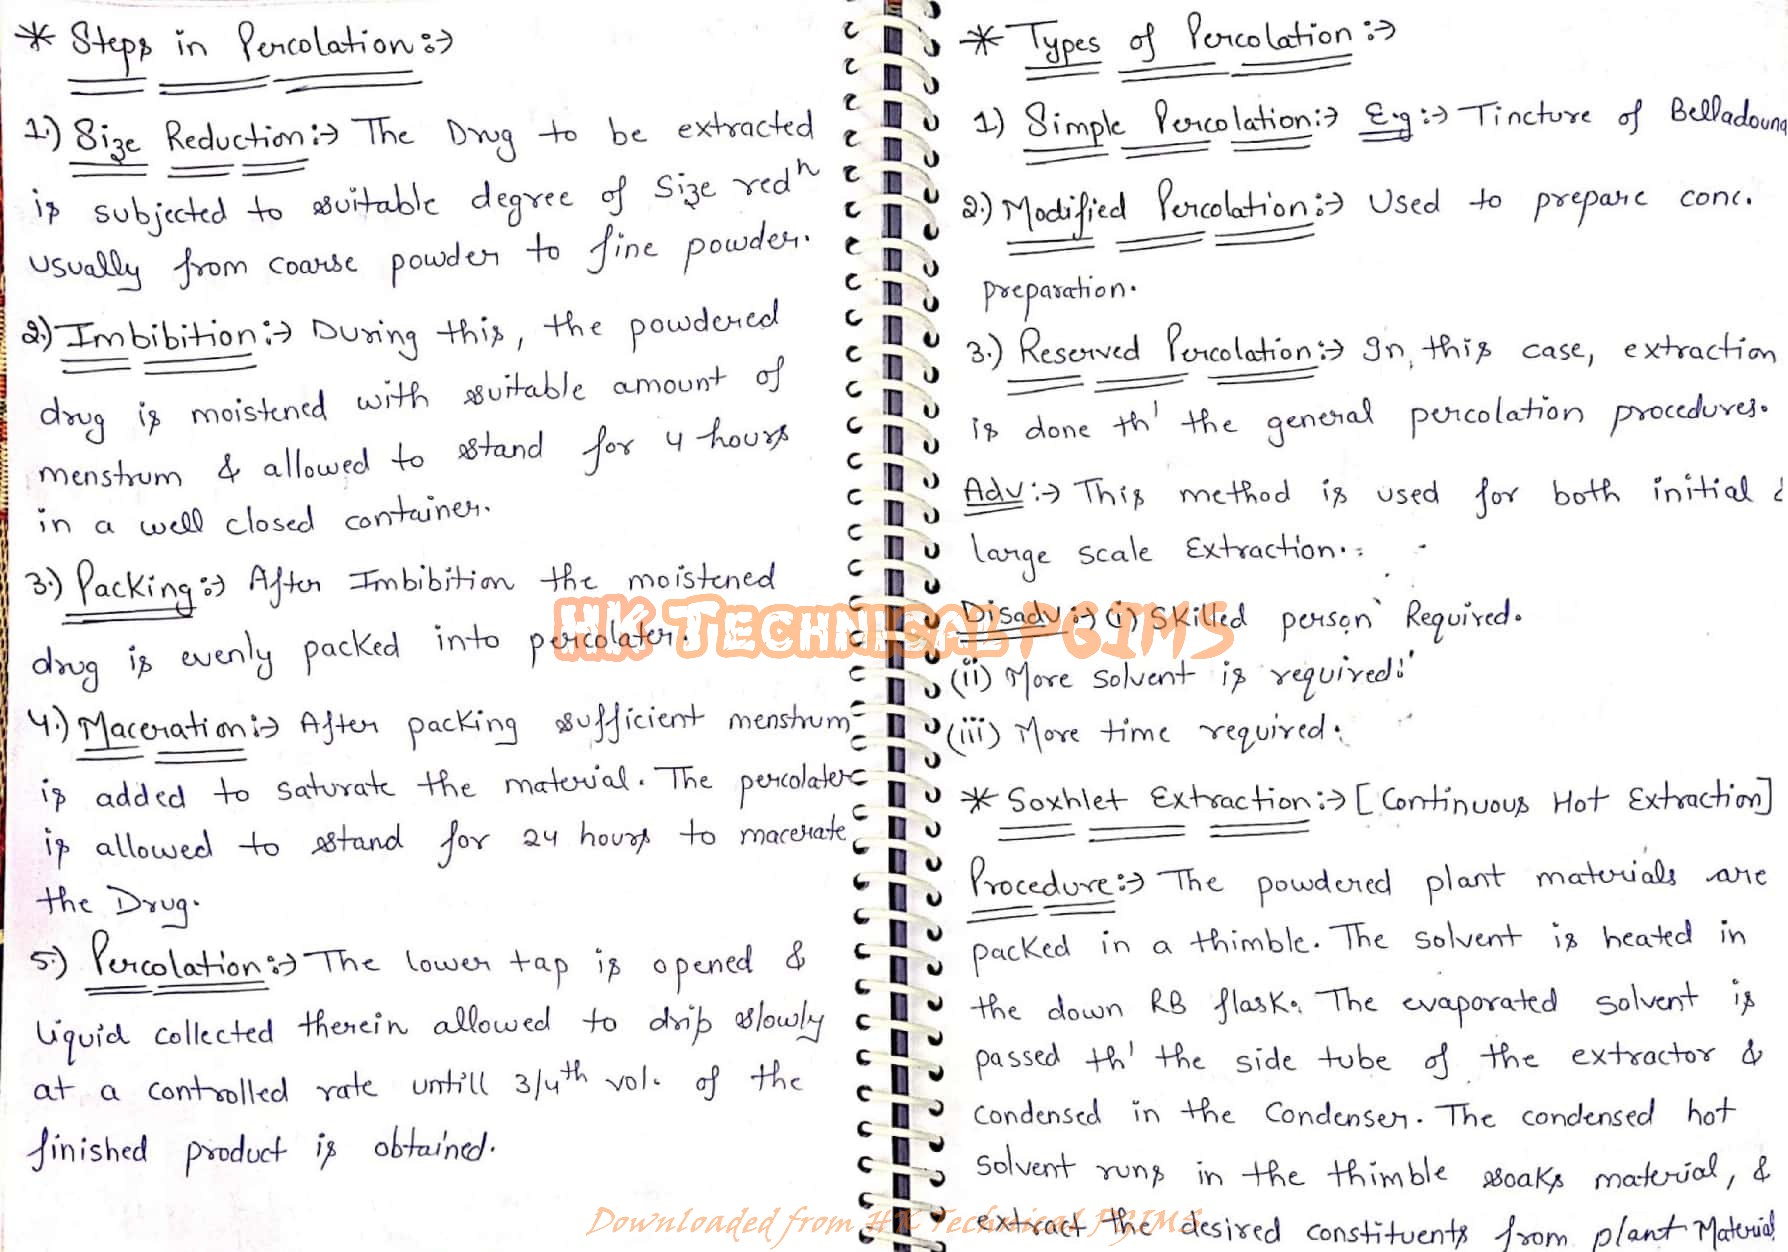 * Steps in Percolation :→
1.) Size Reduction :→ The Drug to be extracted
is subjected to suitable degree of Size redⁿ
usually from coarse powder to fine powder.
2.) Imbibition :→ During this, the powdered
drug is moistened with suitable amount of
menstrum & allowed to stand for 4 hours
in a well closed container.
3.) Packing :→ After Imbibition the moistened
drug is evenly packed into percolater.
4.) Maceration :→ After packing sufficient menstrum
is added to saturate the material. The percolater
is allowed to stand for 24 hours to macerate
the Drug.
5.) Percolation :→ The lower tap is opened &
liquid collected therein allowed to drip slowly
at a controlled rate untill 3/4th vol. of the
finished product is obtained.
* Types of Percolation :→
1) Simple Percolation :→ E.g :→ Tincture of Belladouna
2.) Modified Percolation :→ Used to prepare conc.
preparation.
3.) Reserved Percolation :→ In, this case, extraction
is done th' the general percolation procedures.
Adv :→ This method is used for both initial &
large scale Extraction.
Disadv :→ (i) Skilled person Required.
(ii) More solvent is required.
(iii) More time required.
* Soxhlet Extraction :→ [Continuous Hot Extraction]
Procedure :→ The powdered plant materials are
packed in a thimble. The solvent is heated in
the down RB flask. The evaporated solvent is
passed th' the side tube of the extractor &
condensed in the Condenser. The condensed hot
solvent runs in the thimble soaks material, &
extract the desired constituents from plant Material
HK Technical PGIMS
Downloaded from HK Technical PGIMS